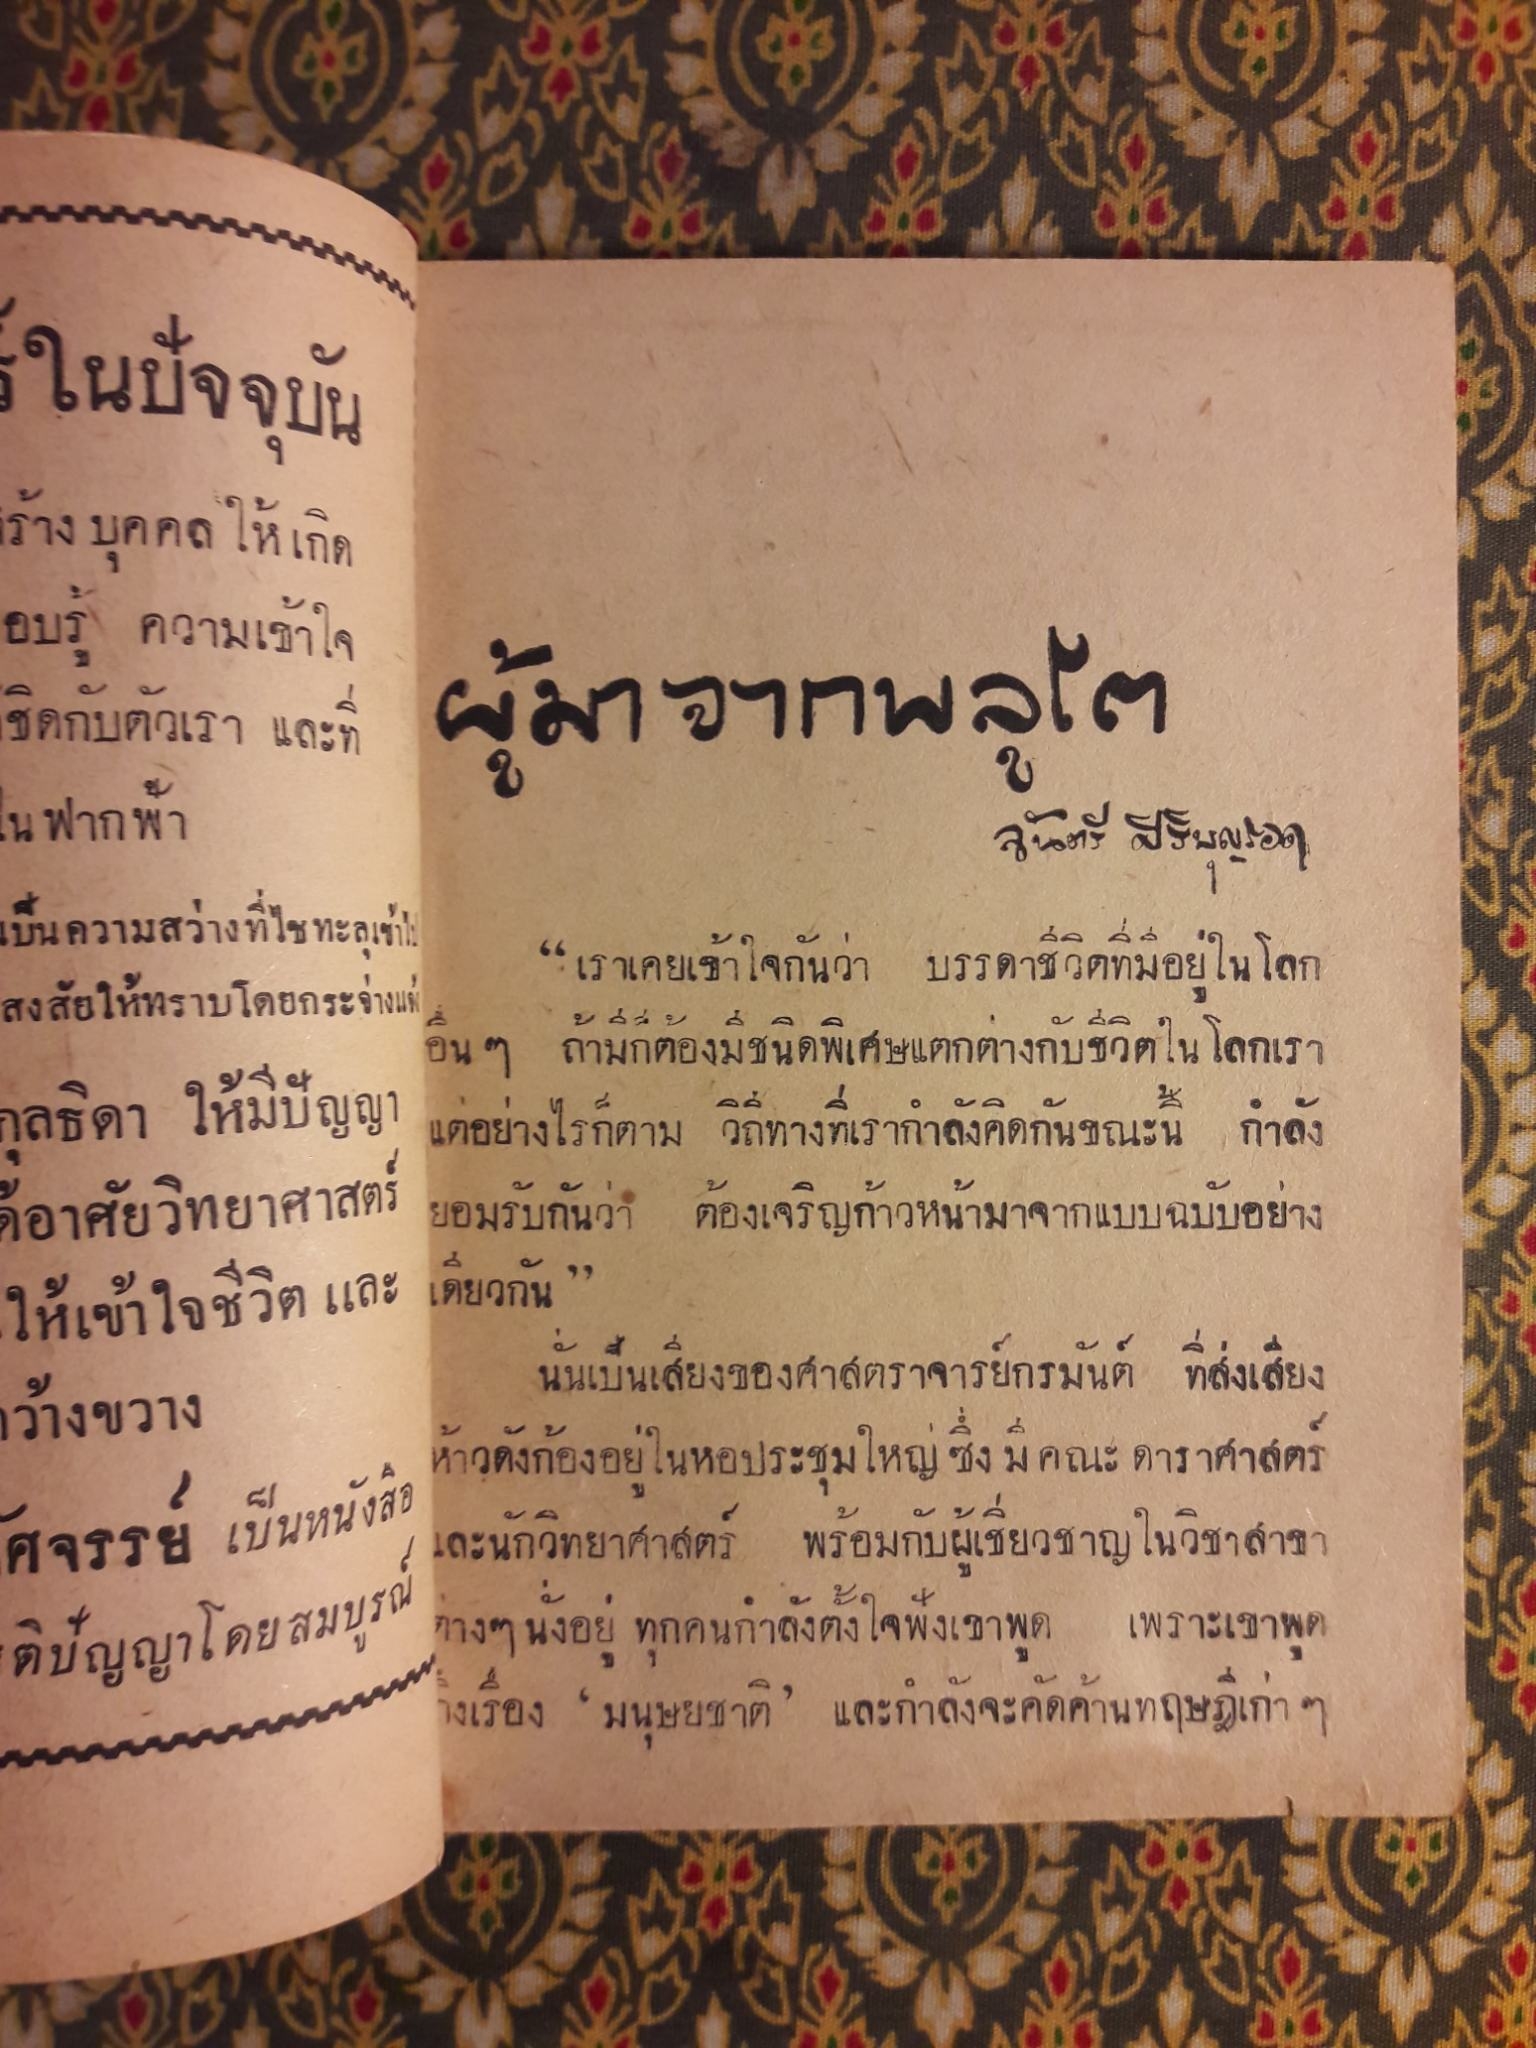 ร์ในปัจจุบัน
สร้าง บุคคล ให้ เกิด
อบรู้ ความเข้าใจ
ชิดกับตัวเรา และที่
ใน ฟากฟ้า
เป็นความสว่างที่ไชทะลุเข้าไป
สงสัยให้ทราบโดยกระจ่างแจ้ง
กุลธิดา ให้มีปัญญา
ด้อาศัยวิทยาศาสตร์
ให้เข้าใจชีวิต และ
กว้างขวาง
ัศจรรย์ เป็นหนังสือ
สติปัญญาโดยสมบูรณ์
ผู้มาจากพลูโต
จันตรี ศิริบุญรอด
“เราเคยเข้าใจกันว่า บรรดาชีวิตที่มีอยู่ในโลก
อื่นๆ ถ้ามีก็ต้องมีชนิดพิเศษแตกต่างกับชีวิตในโลกเรา
แต่อย่างไรก็ตาม วิถีทางที่เรากำลังคิดกันขณะนี้ กำลัง
ยอมรับกันว่า ต้องเจริญก้าวหน้ามาจากแบบฉบับอย่าง
เดียวกัน”
นั่นเป็นเสียงของศาสตราจารย์กรมันต์ ที่ส่งเสียง
ห้าวดังก้องอยู่ในหอประชุมใหญ่ ซึ่ง มี คณะ ดาราศาสตร์
และนักวิทยาศาสตร์ พร้อมกับผู้เชี่ยวชาญในวิชาสาขา
ต่างๆ นั่งอยู่ ทุกคนกำลังตั้งใจฟังเขาพูด เพราะเขาพูด
ถึงเรื่อง ‘มนุษยชาติ’ และกำลังจะคัดค้านทฤษฎีเก่า ๆ